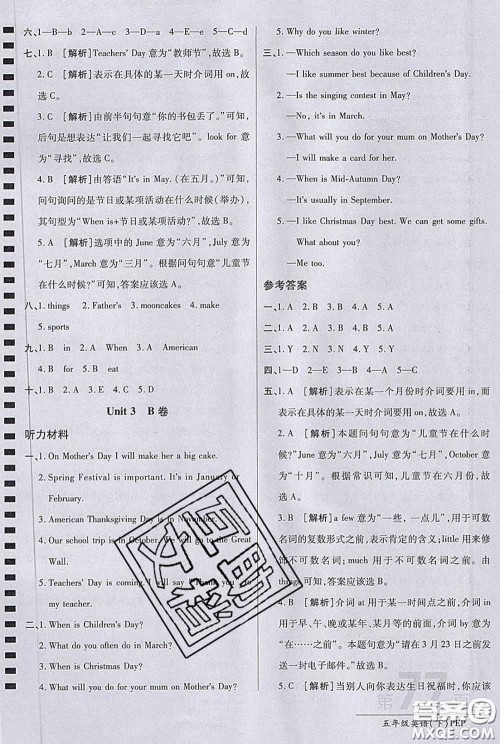 六、1—B—b 2—D—a 3—A—e 4—E—d 5—C—c
七、1. B [解析] Teachers' Day 意为“教师节”,故选 B。
2. C [解析] 表示在具体的某一天时介词用 on,故选 C。
3. C [解析] 由前半句句意“你的书包丢了。”可知,
后句是想表达“让我们一起寻找它吧”。look for 意
为“寻找”,故选 C。
4. B [解析] 由答语“It's in May.(在五月。)”可知,
问句询问的是节日或某项活动在什么时候(举办),
其句型为“When is+节日或某项活动?”,故选 B。
5. A [解析] 选项中的 June 意为“六月”,July 意为
“七月”,March 意为“三月”。根据问句句意“儿童节
在什么时候?”可知,答案应该选 A。
八、1. things 2. Father's 3. mooncakes 4. make
5. sports
九、1. B in 2. A When 3. A American
4. B February 5. B for
十、1. B 2. A 3. C 4. E 5. D
Unit 3 B 卷
听力材料
一、1. On Mother's Day I will make her a big cake.
2. Spring Festival is important. It's in January or
February.
3. American Thanksgiving Day is in November.
4. Our school trip is in October. We will go to the Great
Wall.
5. Teachers' Day is coming. I will say "Thank you" to
my teacher.
二、1. When is Children's Day?
2. What do you often do in March?
3. When is Christmas Day?
4. What will you do for your mum?
5. Why do you like winter?
三、1. —Which season do you like best?
—I like summer best because of Children's Day.
2. —Is the singing contest in May?
—No, it's in March.
3. —What will you do for your mum on Mother's Day?
—I will make a card for her.
4. —When is Mid-Autumn Day?
—It's usually in September.
5. —I like Christmas Day best. We can get some gifts.
What about you?
—Me too.
参考答案
一、1. A 2. B 3. B 4. A 5. A
二、1. A 2. B 3. B 4. A 5. A
三、1. Y 2. N 3. Y 4. N 5. N
四、1—D 2—E 3—B 4—C 5—A
五、1. A [解析] 表示在某一个月份时介词要用 in。
2. B [解析] 本题问句句意为“儿童节在什么时
候?” June 意为“六月”,July 意为“七月”,October 意
为“十月”。根据常识可知,儿童节在六月份,故
选 A。
3. A [解析] a few 意为“一些,一点儿”,用于可数
名词的复数形式前,表示肯定含义;little 用来修
不可数名词;much 用于不可数名词前。由
things 可知,答案应该选 A。
4. B [解析] 介词 at 用于某一时间点之前,介词 in
用于早、午、晚或某年、某月等的前面,by 意为
“在……之前”。本题句意为“请在 3 月 23 日之前发
一封电子邮件。”故选 B。
5. C [解析] 当别人向你表达生日祝福时,你应该
第 77 页
五年级英语(下)PEP
互助文档
答案圈
MXQE.COM